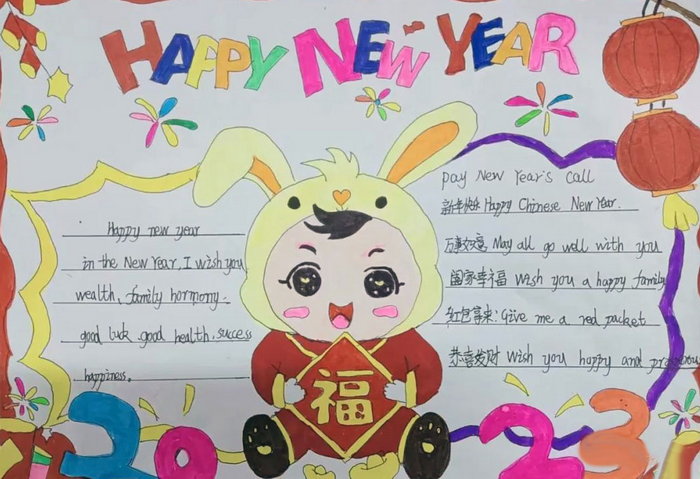 HAPPY NEW YEAR
Happy new year
in the New Year, I wish you
wealth, family hormony.
good luck good health, success
happiness.
pay New Year's call
新年快乐 Happy Chinese New Year.
万事如意 May all go well with you
阖家幸福 Wish you a happy family
红包拿来: Give me a red packet
恭喜发财 Wish you happy and prosperous
福
2023